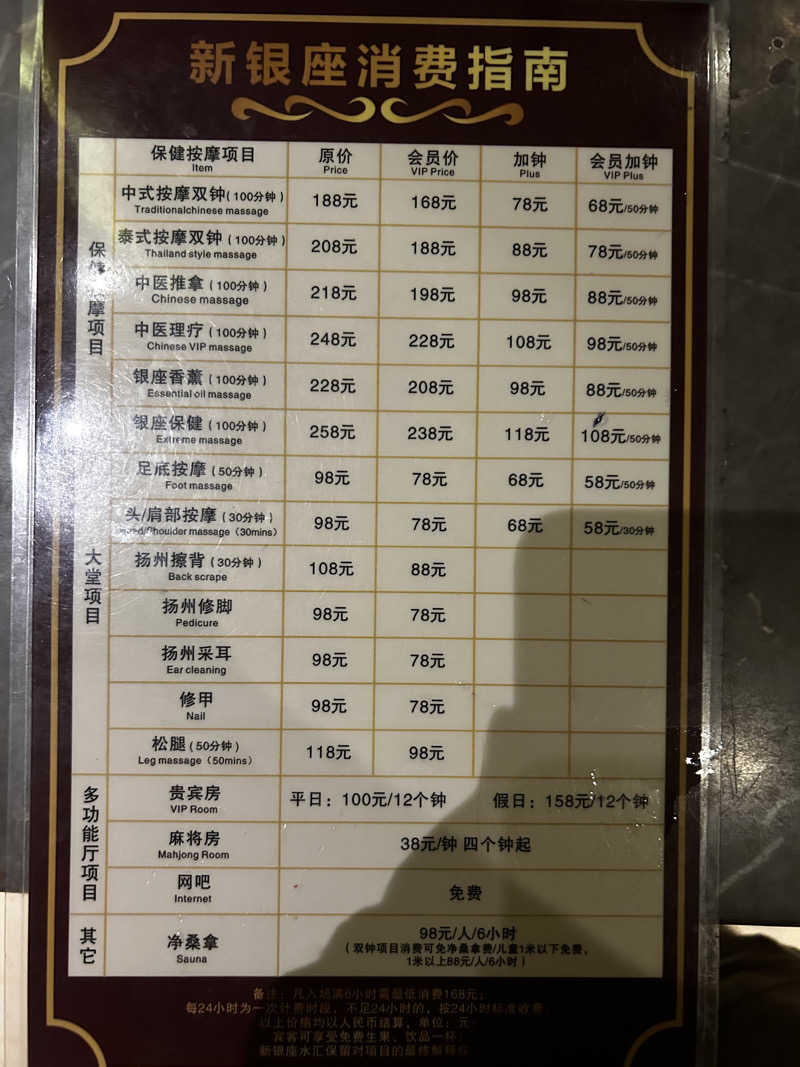 新银座消费指南
保健按摩项目 原价 会员价 加钟 会员加钟
Item Price VIP Price Plus VIP Plus
保健按摩项目
中式按摩双钟(100分钟) 188元 168元 78元 68元/50分钟
Traditionalchinese massage
泰式按摩双钟(100分钟) 208元 188元 88元 78元/50分钟
Thailand style massage
中医推拿(100分钟) 218元 198元 98元 88元/50分钟
Chinese massage
中医理疗(100分钟) 248元 228元 108元 98元/50分钟
Chinese VIP massage
银座香薰(100分钟) 228元 208元 98元 88元/50分钟
Essential oil massage
银座保健(100分钟) 258元 238元 118元 108元/50分钟
Extreme massage
大堂项目
足底按摩(50分钟) 98元 78元 68元 58元/50分钟
Foot massage
头/肩部按摩(30分钟) 98元 78元 68元 58元/30分钟
Head/Shoulder massage(30mins)
扬州擦背(30分钟) 108元 88元
Back scrape
扬州修脚 98元 78元
Pedicure
扬州采耳 98元 78元
Ear cleaning
修甲 98元 78元
Nail
松腿(50分钟) 118元 98元
Leg massage(50mins)
多功能厅项目
贵宾房 平日：100元/12个钟 假日：158元/12个钟
VIP Room
麻将房 38元/钟 四个钟起
Mahjong Room
网吧 免费
Internet
其它
净桑拿 98元/人/6小时
Sauna
(双钟项目消费可免净桑拿费/儿童1米以下免费、
1米以上88元/人/6小时)
备注：凡入场满6小时需最低消费168元；
每24小时为一次计费时段，不足24小时的，按24小时标准收费
以上价格均以人民币结算，单位：元
宾客可享受免费生果、饮品一杯
新银座水汇保留对项目的最终解释权